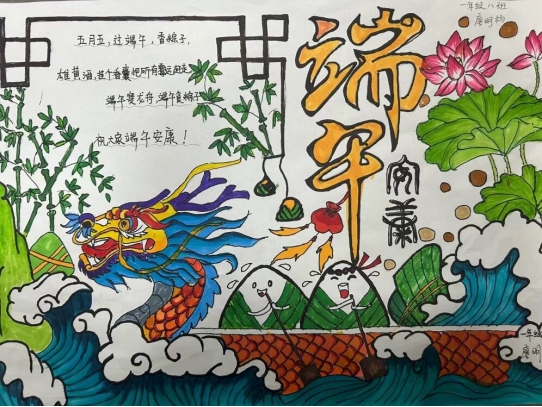 一年级八班
五月五,过端午,香粽子,
雄黄酒,挂个香囊把所有霉运
端午赛龙舟 端午食粽子
祝大家端午安康!
端午
安康
一年级